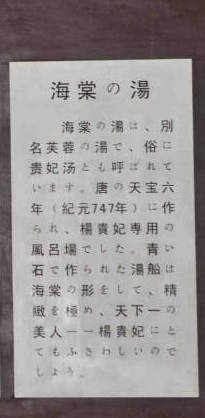 海棠の湯
海棠の湯は、別
名芙蓉の湯で、俗に
贵妃汤とも呼ばれて
います。唐の天宝六
年（紀元747年）に作
られ、楊貴妃専用の
風呂場でした。青い
石で作られた湯船は
海棠の形をして、精
緻を極め、天下一の
美人一一楊貴妃にと
てもふさわしいので
しょう。